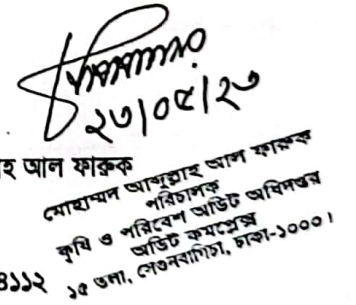 ২৩/০৫/২৩
হ আল ফারুক
মোহাম্মদ আব্দুল্লাহ আল ফারুক
পরিচালক
কৃষি ও পরিবেশ অডিট অধিদপ্তর
অডিট কমপ্লেক্স
১৫ তলা, সেগুনবাগিচা, ঢাকা-১০০০।
৪১১২